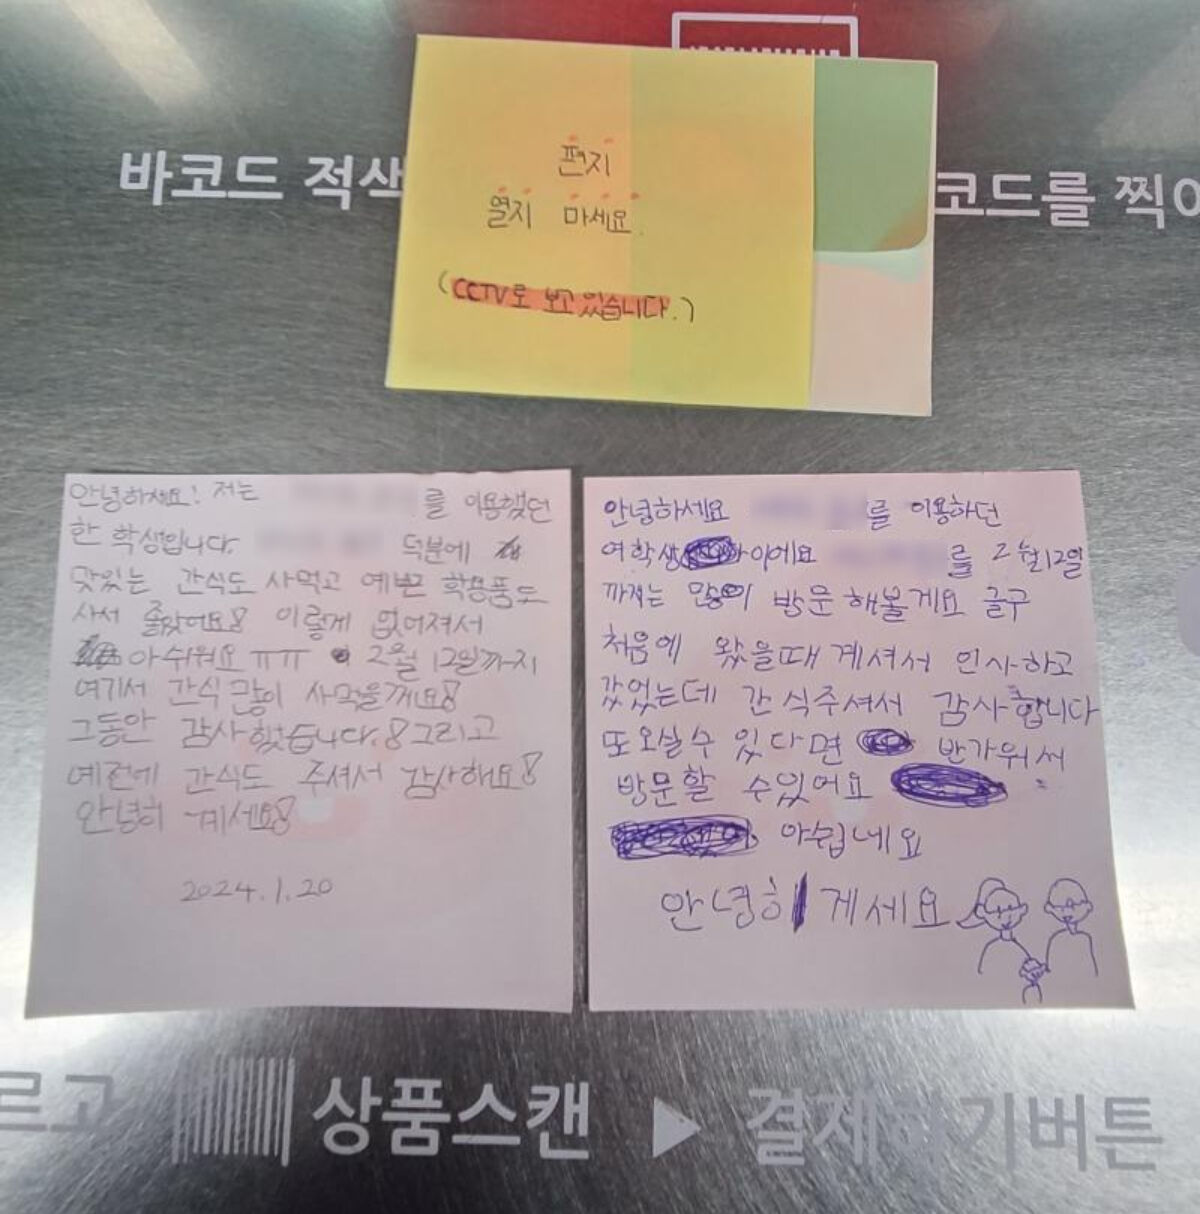 바코드 적색
코드를 찍
편지
열지 마세요.
(CCTV로 보고 있습니다.)
안녕하세요! 저는 를 이용했던
한 학생입니다. 덕분에
맛있는 간식도 사먹고 예쁜 학용품도
사서 좋았어요! 이렇게 없어져서
아쉬워요 ㅠㅠ 2월 12일까지
여기서 간식 많이 사먹을께요!
그동안 감사했습니다.! 그리고
예전에 간식도 주셔서 감사해요!
안녕히 계세요!
2024.1.20
안녕하세요 를 이용하던
여학생 이에요 를 2월12일
까지는 많이 방문 해볼게요 글구
처음에 왔을때 계셔서 인사하고
갔었는데 간식주셔서 감사합니다
또 오실수 있다면 반가워서
방문할 수있어요
아쉽네요
안녕히 게세요
르고 상품스캔 ▶ 결제하기버튼